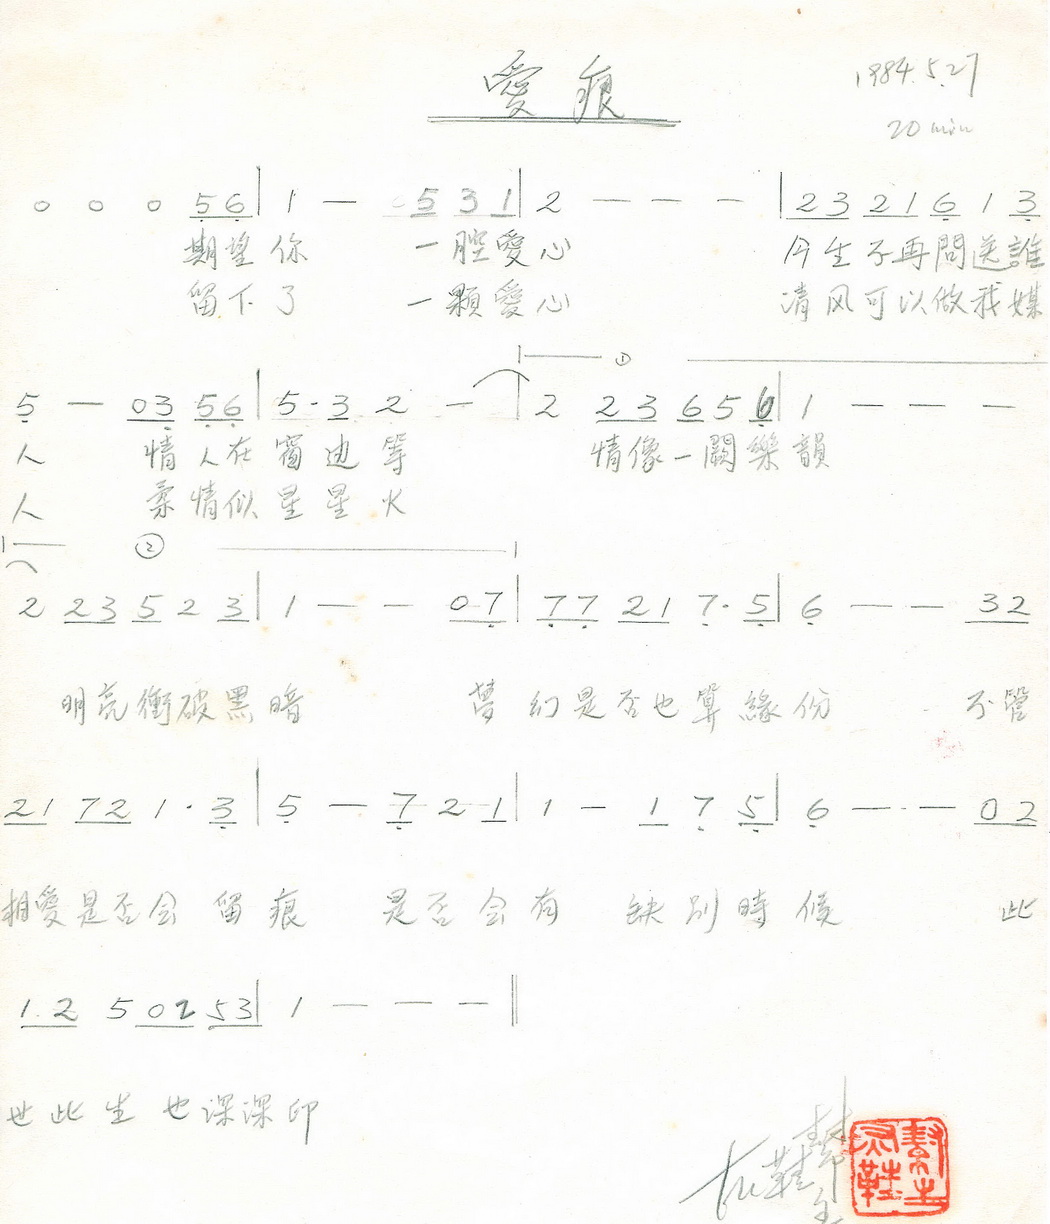 愛痕
1984.5.27
20 min
0 0 0 56 | 1 — 5 3 1 | 2 — — — | 23 21 6 1 3
期望你 一腔愛心 今生不再問送誰
留下了 一顆愛心 清风可以做我媒
①
5 — 03 56 | 5·3 2 — | 2 23 656 | 1 — — —
人 情人在窗边等 情像一闋樂韻
人 柔情似星星火
②
2 23 5 2 3 | 1 — — 07 | 77 21 7·5 | 6 — — 32
明亮衝破黑暗 夢幻是否也算緣份 不管
21 72 1·3 | 5 — 7 2 1 | 1 — 1 7 5 | 6 — — 02
相愛是否会留痕 是否会有 缺別時候 此
1.2 5 02 53 | 1 — — — ||
世此生也深深印